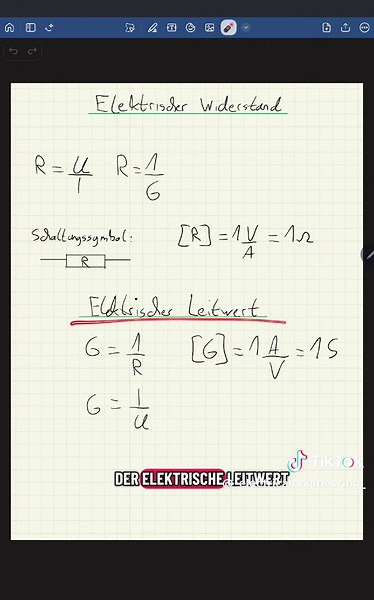 Elektrischer Widerstand
R = U/I R = 1/G
Schaltungssymbol:
R
[R] = 1 V/A = 1Ω
Elektrischer Leitwert
G = 1/R [G] = 1 A/V = 1S
G = I/U
DER ELEKTRISCHE LEITWERT
TikTok